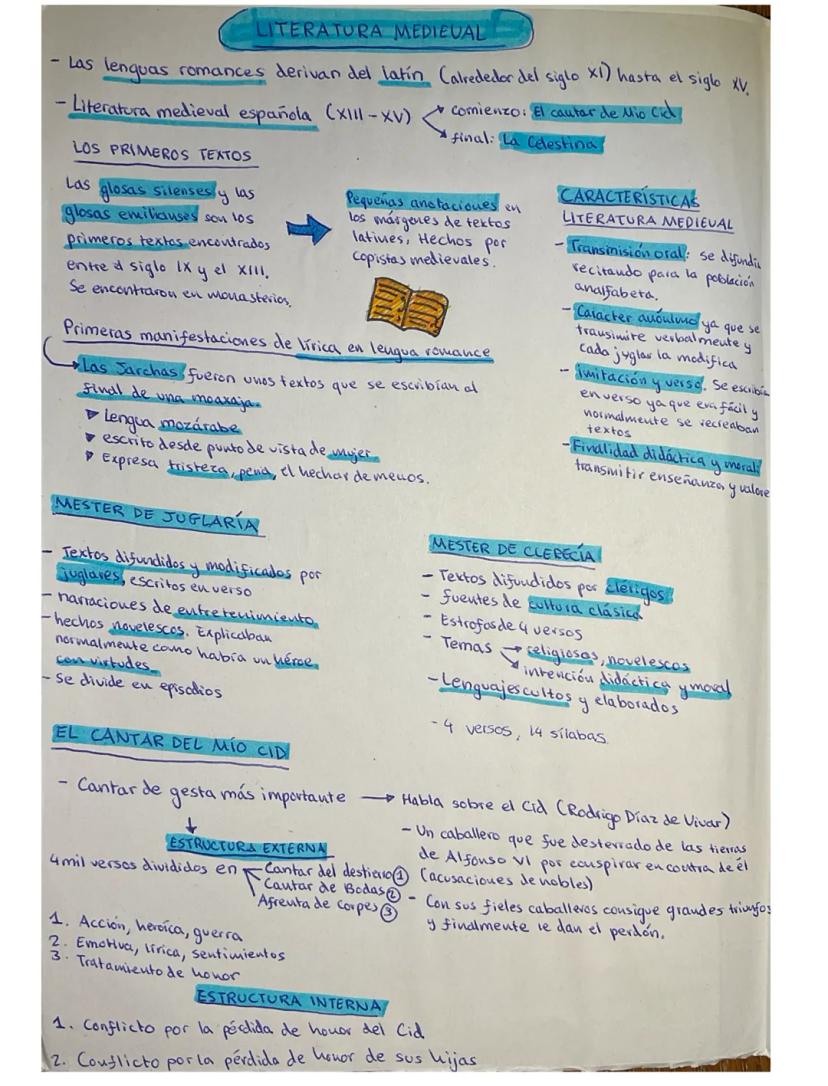 LITERATURA MEDIEVAL
- Las lenguas romances derivan del latín (alrededor del siglo XI) hasta el siglo XV.
- Literatura medieval española (XIII - XV)
comienzo: El cantar de Mio Cid
final: La Celestina
LOS PRIMEROS TEXTOS
Las glosas silenses y las
glosas emilianses son los
primeros textos encontrados
entre el siglo IX y el XIII.
Se encontraron en monasterios.
Pequeñas anotaciones en
los márgenes de textos
latines, Hechos por
copistas medievales.
CARACTERÍSTICAS
LITERATURA MEDIEVAL
- Transmisión oral: se difundía
recitando para la población
analfabeta.
- Carácter anónimo ya que se
transmite verbalmente y
cada juglar la modifica
- Imitación y verso. Se escribía
en verso ya que era fácil y
normalmente se recreaban
textos
- Finalidad didáctica y moral:
transmitir enseñanza y valore
Primeras manifestaciones de lírica en lengua romance
Las Jarchas fueron unos textos que se escribían al
final de una moaxaja.
Lengua mozárabe
escrito desde punto de vista de mujer
Expresa tristeza, pena, el hechar de menos.
MESTER DE JUGLARÍA
- Textos difundidos y modificados por
juglares, escritos en verso
- narraciones de entretenimiento
- hechos novelescos. Explicaban
normalmente como había un héroe
con virtudes.
- Se divide en episodios
MESTER DE CLERECÍA
- Textos difundidos por clérigos
- fuentes de cultura clásica
- Estrofas de 4 versos
- Temas → religiosos, novelescos
intención didáctica y moral
- Lenguajes cultos y elaborados
- 4 versos, 14 sílabas
EL CANTAR DEL MÍO CID
- Cantar de gesta más importante → Habla sobre el Cid (Rodrigo Díaz de Vivar)
- Un caballero que fue desterrado de las tierras
de Alfonso VI por conspirar en contra de él
(acusaciones de nobles)
- Con sus fieles caballeros consigue grandes triunfos
y finalmente le dan el perdón.
ESTRUCTURA EXTERNA
4 mil versos divididos en
Cantar del destierro ①
Cantar de Bodas ②
Afrenta de Corpes ③
1. Acción, heroíca, guerra
2. Emotiva, lírica, sentimientos
3. Tratamiento de honor
ESTRUCTURA INTERNA
1. Conflicto por la pérdida de honor del Cid
2. Conflicto por la pérdida de honor de sus hijas